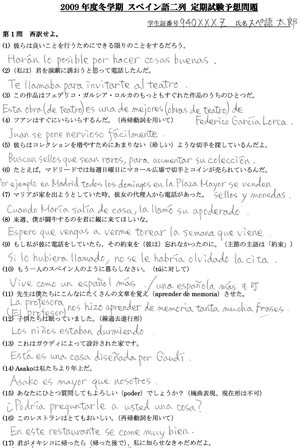 2009 年度冬学期 スペイン語二列 定期試験予想問題
学生証番号 940XXX7 氏名 スペ語 太郎
第1問 西訳せよ。
(1) 彼らは良いことを行うためにできる限りのことをするだろう。
Harán lo posible por hacer cosas buenas.
(2) (私は) 君を演劇に誘おうと思って電話したんだ。
Te llamaba para invitarte al teatro.
(3) この作品はフェデリコ・ガルシア・ロルカのもっともすぐれた作品のうちのひとつだ。
Esta obra (de teatro) es una de mejores (obras de teatro) de
Federico García Lorca.
(4) フアンはすぐにいらいらするんだ。 (再帰動詞を用いて)
Juan se pone nervioso fácilmente.
(5) 彼らはコレクションを増やすためにあまりない (珍しい) 切手を探しているんだよ。
Buscan sellos que sean raros, para aumentar su colección.
(6) たとえば、マドリードでは毎週日曜日にマヨール広場で切手とコインが売られているんだ。
Por ejemplo en Madrid todos los domingos en la Plaza Mayor se venden
sellos y monedas.
(7) マリアが家を出ようとしていた時、彼女の代理人から電話があった。
Cuando María salía de casa, la llamó su apoderado.
(8) 来週、僕が闘牛するのを君に観に来てほしいな。
Espero que vengas a verme torear la semana que viene.
(9) もし私が彼に電話をしていたら、その約束を (彼は) 忘れなかったのに。 (主節の主語は「約束」)
Si lo hubiera llamado, no se le habría olvidado la cita.
(10) もう一人のスペイン人のように暮らしなさい。 (túに対して)
Vive como un español más. / una española más も可
(11) 先生は僕たちにこんなにたくさんの文章を覚え (aprender de memoria) させた。
La profesora
(El profesor) nos hizo aprender de memoria tanta mucha frases.
(12) 子供たちは眠っていました。 (線過去進行形)
Los niños estaban durmiendo.
(13) これはガウディによって設計された家です。
Esta es una casa diseñada por Gaudí.
(14) Asakoは私たちより年上だ。
Asako es mayor que nosotros.
(15) あなたにひとつ質問してもよろしい (poder) でしょうか? (婉曲表現、現在形は不可)
¿Podría preguntarle a usted una cosa?
(16) このレストランはとてもおいしい。 (再帰動詞を用いて)
En este restaurante se come muy bien.
(17) 君がメキシコに帰ったら (帰った後で)、私に知らせなきゃだめだよ。